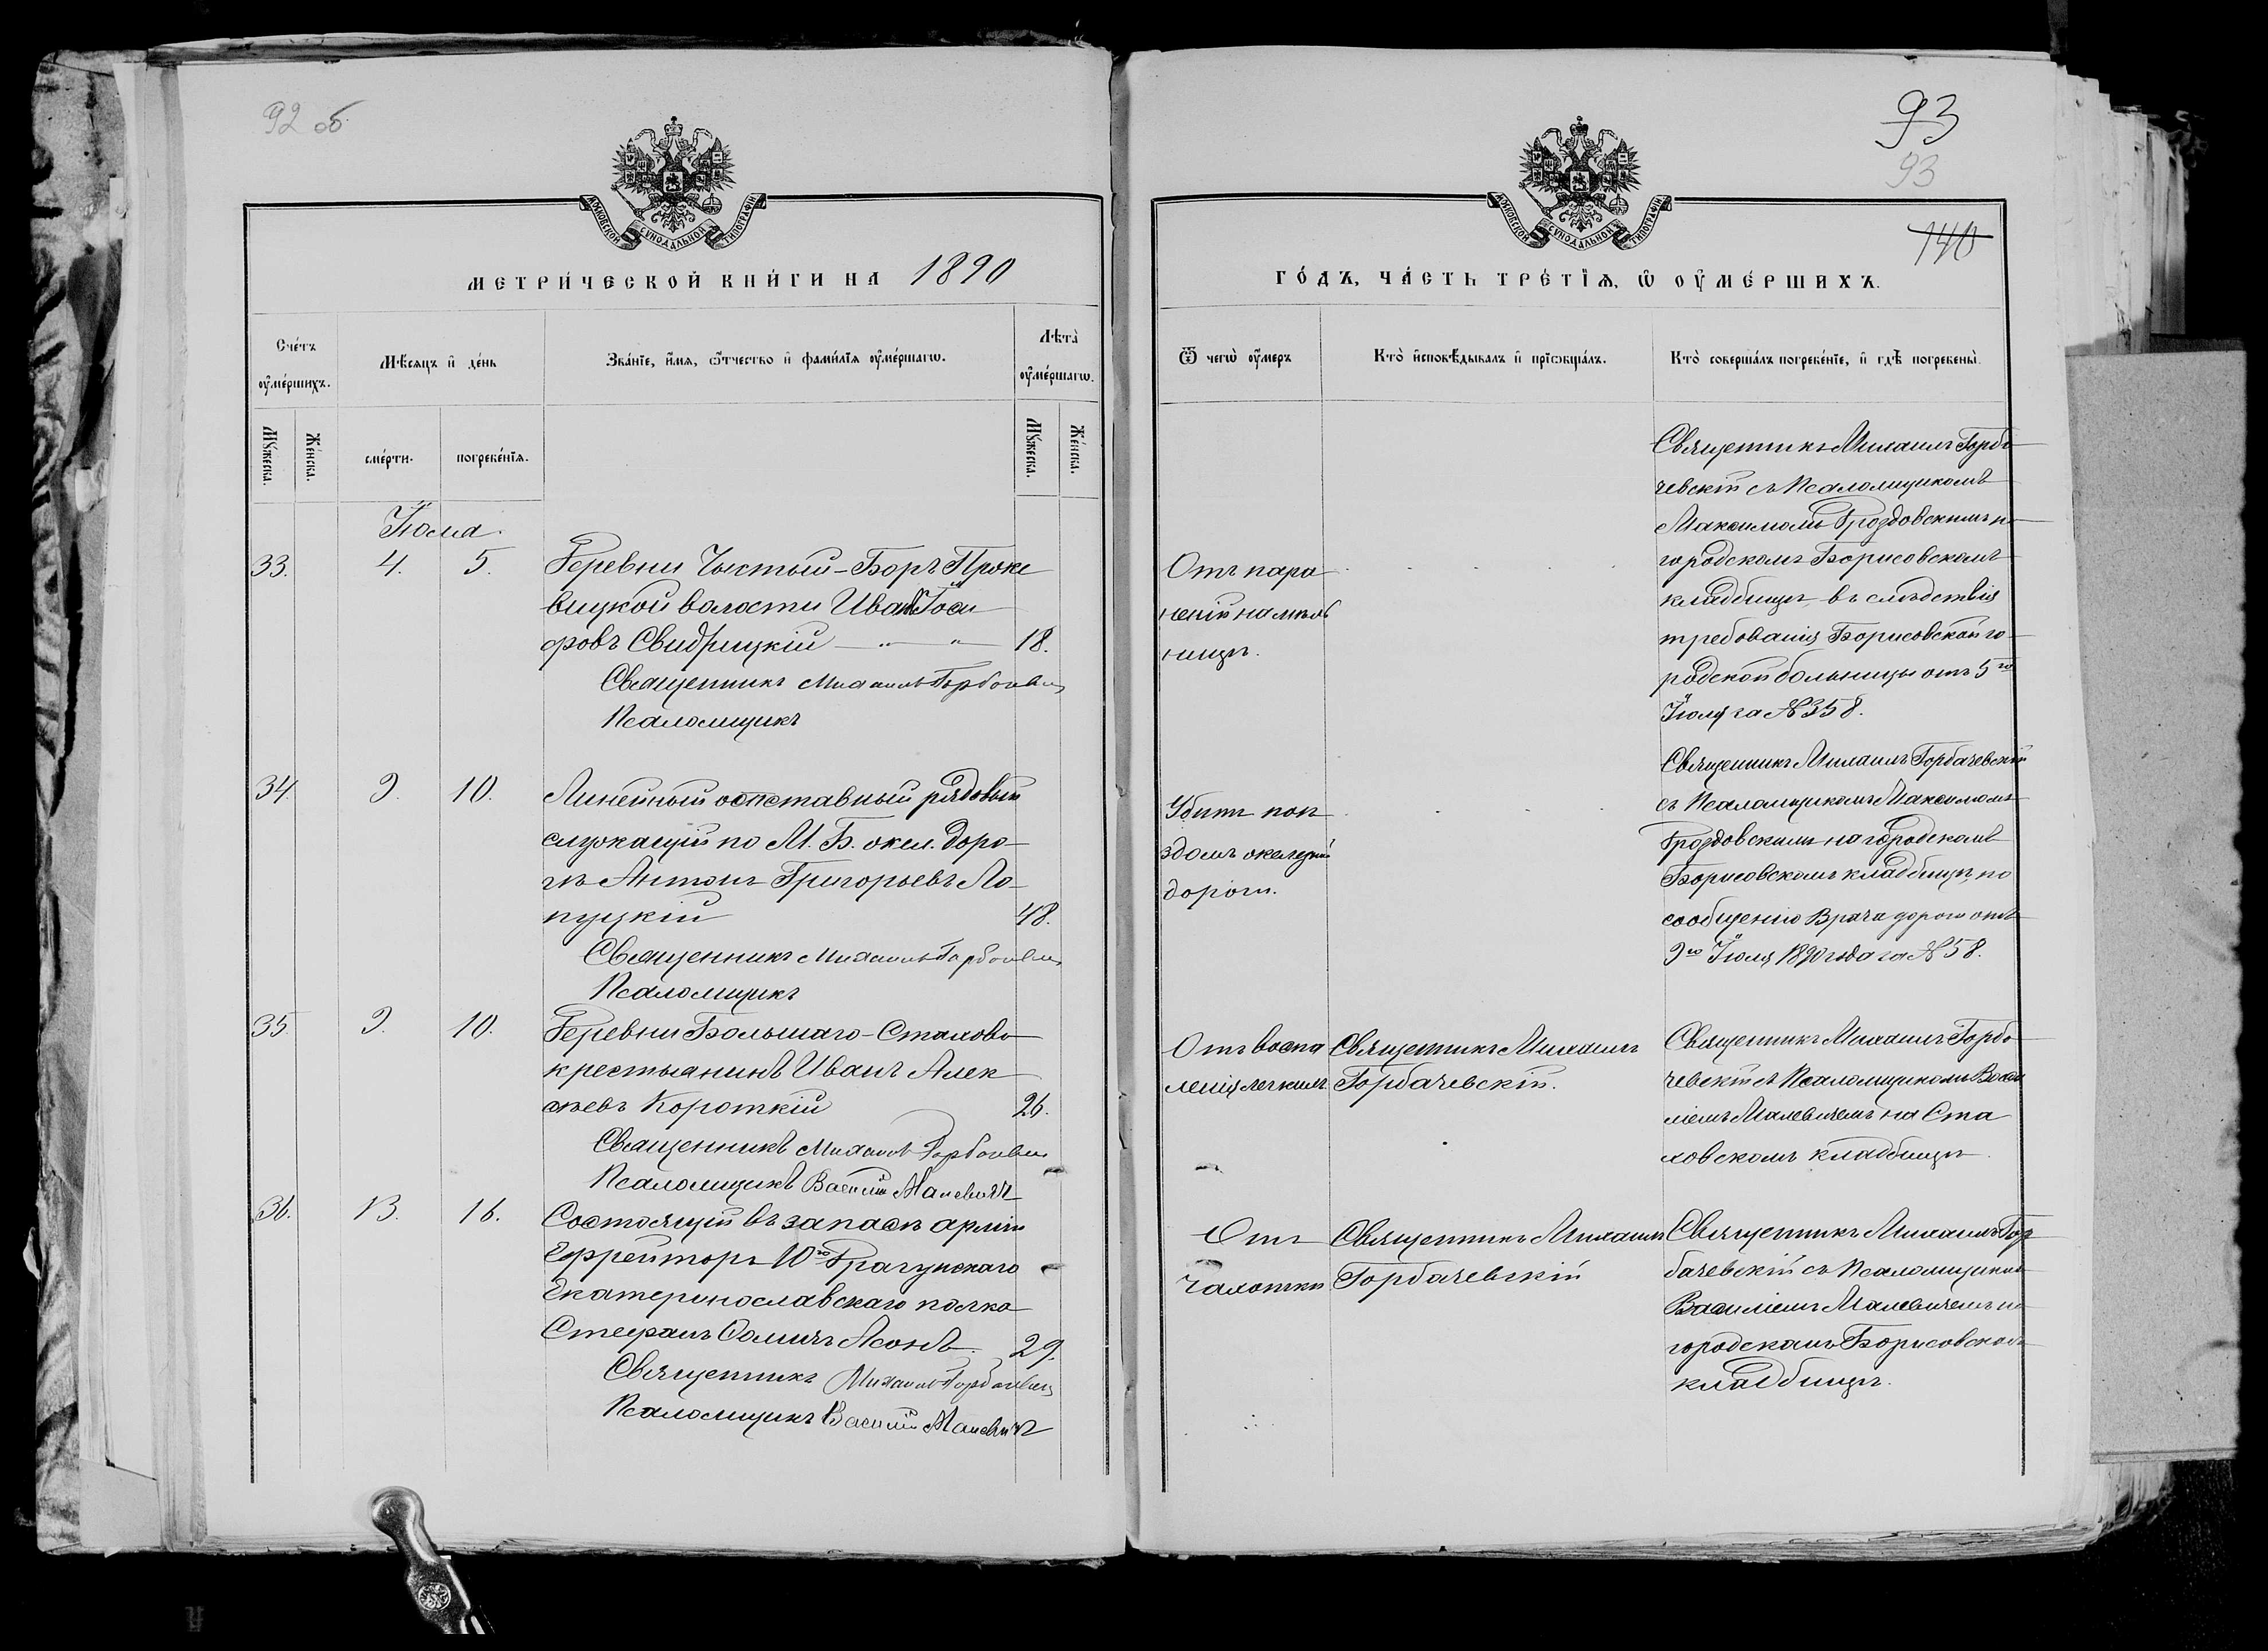 92 об.
МОСКОВСКОЙ СѴНОДАЛЬНОЙ ТИПОГРАФІИ
МЕТРИ́ЧЕСКОЙ КНИ́ГИ НА 1890
Сче́тъ ѹ҆ме́ршихъ.
Мѣсяцъ и҆ де́нь
Зва́нїе, и҆́мѧ, ѻ҆́тчество и҆ фами́лїѧ ѹ҆ме́ршагѡ.
Лѣта̀ ѹ҆ме́ршагѡ.
Мꙋ́жеска.
Же́нска.
сме́рти.
погребе́нїѧ.
Мꙋ́жеска.
Же́нска.
Іюля
33.
4.
5.
Деревни Чистый-Боръ Проке
вицкой волости Иванъ Іоси
фовъ Свидрицкій — " — " — 18.
Священникъ Михаилъ Горбачевскій
Псаломщикъ
34.
9.
10.
Линейный отставный рядовый
служащій по М. Б. жел. доро-
гѣ Антонъ Григорьевъ Ло-
пуцкій 48.
Священникъ Михаилъ Горбачевскій
Псаломщикъ
35.
9.
10.
Деревни Большаго-Стахово
крестьянинъ Иванъ Алек
сѣевъ Короткій 26.
Священникъ Михаилъ Горбачевскій
Псаломщикъ Василій Малевичъ
36.
13.
16.
Состоящій въ запасѣ арміи
Ефрейторъ 10го Драгунскаго
Екатеринославскаго полка
Стефанъ Ѳоминъ Ясонъ. 29.
Священникъ Михаилъ Горбачевскій
Псаломщикъ Василій Малевичъ
93
93
140
МОСКОВСКОЙ СѴНОДАЛЬНОЙ ТИПОГРАФІИ
ГО́ДЪ, ЧА́СТЬ ТРЕ́ТЇѦ, Ѡ҆ ОУ҆МЕ́РШИХЪ.
Ѿ чегѡ̀ ѹ҆́меръ
Кто̀ и҆сповѣ́дывалъ и҆ прїѡбща́лъ.
Кто̀ соверша́лъ погребе́нїе, и҆ гдѣ̀ погребены̀.
Отъ пора
неній на мель
ницѣ.
Священникъ Михаилъ Горба
чевскій съ Псаломщикомъ
Максимомъ Гроздовскимъ на
городскомъ Борисовскомъ
кладбищѣ, въ слѣдствія
требованія Борисовской го-
родской больницы отъ 5го
Іюля за № 358.
Убитъ поѣ
здомъ желѣзной
дороги.
Священникъ Михаилъ Горбачевскій
съ Псаломщикомъ Максимомъ
Гроздовскимъ на городскомъ
Борисовскомъ кладбищѣ, по
сообщенію Врача дороги отъ
9го Іюля 1890 года за № 58.
Отъ воспа
ленія легкихъ
Священникъ Михаилъ
Горбачевскій.
Священникъ Михаилъ Горба
чевскій съ Псаломщикомъ Васи
ліемъ Малевичемъ на Ста
ховскомъ кладбищѣ.
Отъ
чахотки
Священникъ Михаилъ
Горбачевскій
Священникъ Михаилъ Гор
бачевскій съ Псаломщикомъ
Василіемъ Малевичемъ на
городскомъ Борисовскомъ
кладбищѣ.